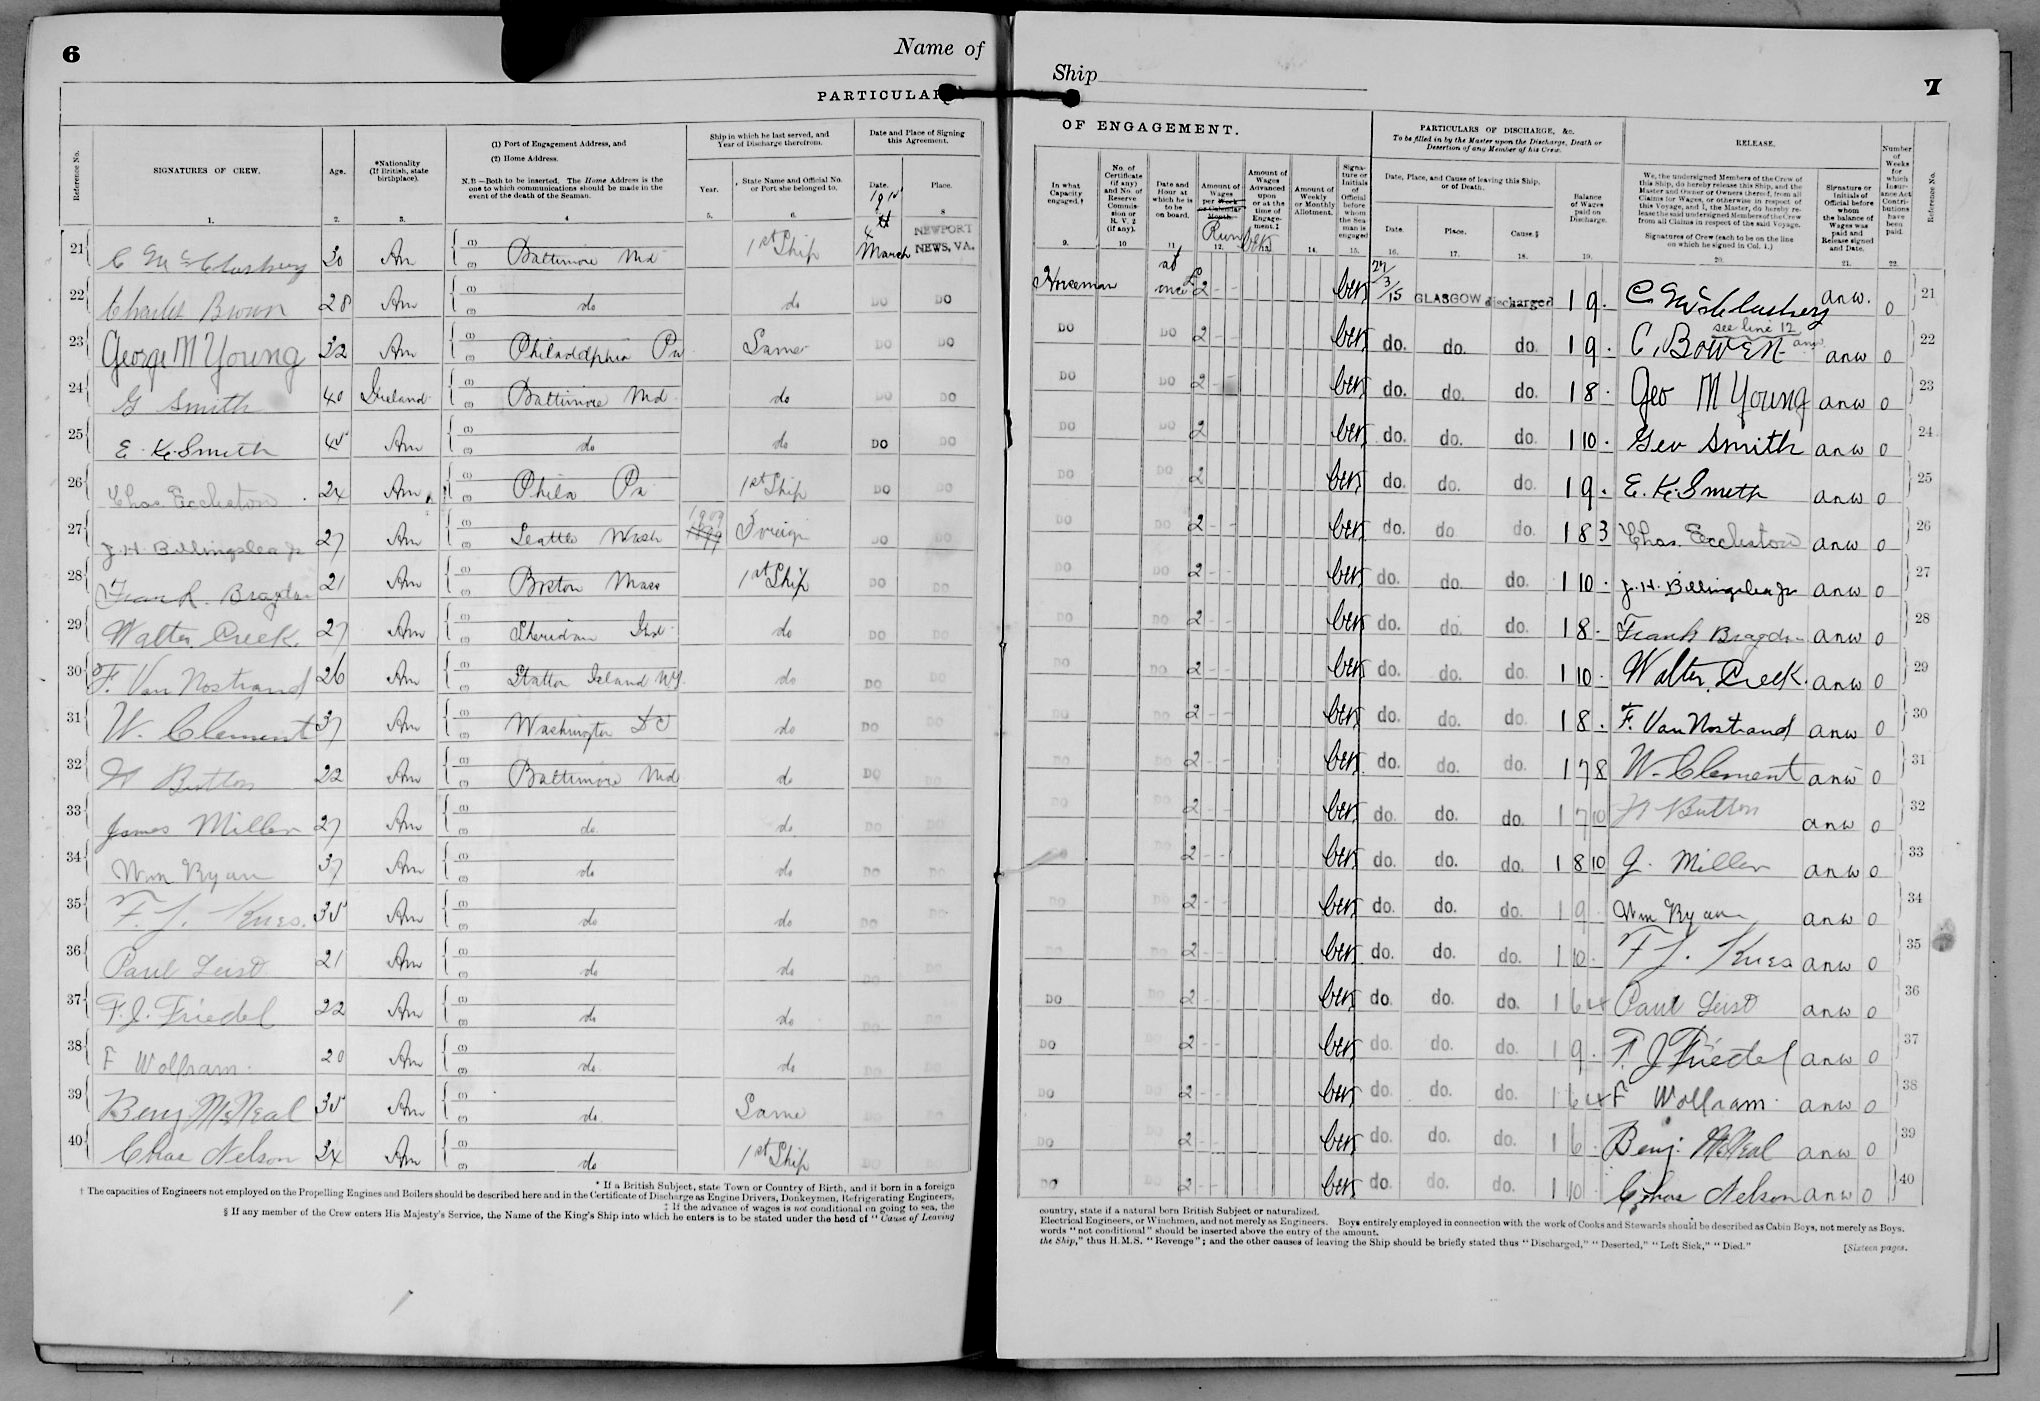 6
Name of
PARTICULARS
Reference No.
SIGNATURES OF CREW.
Age.
*Nationality (If British, state birthplace).
(1) Port of Engagement Address, and
(2) Home Address.
N.B.—Both to be inserted. The Home Address is the one to which communications should be made in the event of the death of the Seaman.
Ship in which he last served, and Year of Discharge therefrom.
Year.
State Name and Official No. or Port she belonged to.
Date and Place of Signing this Agreement.
Date.
Place.
1. 2. 3. 4 5. 6. 8
21 C McCluskey 30 Am (1) (2) Baltimore Md 1st Ship 4th March NEWPORT NEWS, VA.
22 Charles Brown 28 Am (1) (2) do do DO DO
23 George M Young 32 Am (1) (2) Philadelphia Pa Same DO DO
24 G Smith 40 Ireland (1) (2) Baltimore Md do DO DO
25 E. K. Smith 45 Am (1) (2) do do DO DO
26 Chas Eccleston 24 Am (1) (2) Phila Pa 1st Ship DO DO
27 J. H. Billingslea Jr 27 Am (1) (2) Seattle Wash 1909 Foreign DO DO
28 Frank Bragdon 21 Am (1) (2) Boston Mass 1st Ship DO DO
29 Walter Creek. 27 Am (1) (2) Sheridan Ind do DO DO
30 F. Van Nostrand 26 Am (1) (2) Statton Island NY. do DO DO
31 W. Clement 37 Am (1) (2) Washington D C do DO DO
32 H Button 22 Am (1) (2) Baltimore Md do DO DO
33 James Miller 27 Am (1) (2) do do DO DO
34 Wm Ryan 37 Am (1) (2) do do DO DO
35 F. J. Kues. 35 Am (1) (2) do do DO DO
36 Paul Leist 21 Am (1) (2) do do DO DO
37 F. J. Friedel 22 Am (1) (2) do do DO DO
38 F Wolfram. 20 Am (1) (2) do do DO DO
39 Benj. McNeal 35 Am (1) (2) do Same DO DO
40 Chas Nelson 34 Am (1) (2) do 1st Ship DO DO
* If a British Subject, state Town or Country of Birth, and if born in a foreign
† The capacities of Engineers not employed on the Propelling Engines and Boilers should be described here and in the Certificate of Discharge as Engine Drivers, Donkeymen, Refrigerating Engineers,
‡ If the advance of wages is not conditional on going to sea, the
§ If any member of the Crew enters His Majesty's Service, the Name of the King's Ship into which he enters is to be stated under the head of "Cause of Leaving
Ship
7
OF ENGAGEMENT.
In what Capacity engaged.†
No. of Certificate (if any) and No. of Reserve Commission or R. V. 2 (if any).
Date and Hour at which he is to be on board.
Amount of Wages per Week or Calendar Month.
Run
Amount of Wages Advanced upon or at the time of Engagement.‡
Amount of Weekly or Monthly Allotment.
Signature or Initials of Official before whom the Seaman is engaged
PARTICULARS OF DISCHARGE, &c.
To be filled in by the Master upon the Discharge, Death or Desertion of any Member of his Crew.
Date, Place, and Cause of leaving this Ship, or of Death.
Date.
Place.
Cause.§
Balance of Wages paid on Discharge.
RELEASE.
We, the undersigned Members of the Crew of this Ship, do hereby release this Ship, and the Master and Owner or Owners thereof, from all Claims for Wages, or otherwise in respect of this Voyage, and I, the Master, do hereby release the said undersigned Members of the Crew from all Claims in respect of the said Voyage.
Signatures of Crew (each to be on the line on which he signed in Col. 1.)
Signature or Initials of Official before whom the balance of Wages was paid and Release signed and Date.
Number of Weeks for which Insurance Act Contributions have been paid.
Reference No.
9. 10 11. 12. 13. 14. 15. 16. 17. 18. 19. 20. 21. 22.
Horseman at once £2 - - 27/3/15 GLASGOW discharged 1 9 . C McCluskey anw. 0 21
DO DO 2 - - do. do. do. 1 9 . C. BOWEN see line 12 anw anw 0 22
DO DO 2 - do. do. do. 1 8 . Geo M Young anw 0 23
DO DO 2 do. do. do. 1 10 . Geo Smith anw 0 24
DO DO 2 do. do. do. 1 9 . E. K. Smith anw 0 25
DO DO 2 - - do. do. do. 1 8 3 Chas. Eccleston anw 0 26
DO DO 2 - - do. do. do. 1 10 . J. H. Billingslea Jr anw 0 27
DO DO 2 - - do. do. do. 1 8 . Frank Bragdon anw 0 28
DO DO 2 - - do. do. do. 1 10 . Walter Creek. anw 0 29
DO DO 2 - - do. do. do. 1 8 . F. Van Nostrand anw 0 30
DO DO 2 - - do. do. do. 1 7 8 W. Clement anw 0 31
DO DO 2 - - do. do. do. 1 7 10 H Button anw 0 32
DO DO 2 - - do. do. do. 1 8 10 J. Miller anw 0 33
DO DO 2 - - do. do. do. 1 9 . Wm Ryan anw 0 34
DO DO 2 - - do. do. do. 1 10 . F J. Kues anw 0 35
DO DO 2 - - do. do. do. 1 6 4 Paul Leist anw 0 36
DO DO 2 - - do. do. do. 1 9 . F. J Friedel anw 0 37
DO DO 2 - - do. do. do. 1 6 4 F Wolfram. anw 0 38
DO DO 2 - - do. do. do. 1 6 . Benj. McNeal anw 0 39
DO DO 2 - - do. do. do. 1 10 . Chas Nelson anw 0 40
country, state if a natural born British Subject or naturalized.
Electrical Engineers, or Winchmen, and not merely as Engineers. Boys entirely employed in connection with the work of Cooks and Stewards should be described as Cabin Boys, not merely as Boys.
words "not conditional" should be inserted above the entry of the amount.
the Ship," thus H.M.S. "Revenge"; and the other causes of leaving the Ship should be briefly stated thus "Discharged," "Deserted," "Left Sick," "Died."
[Sixteen pages.